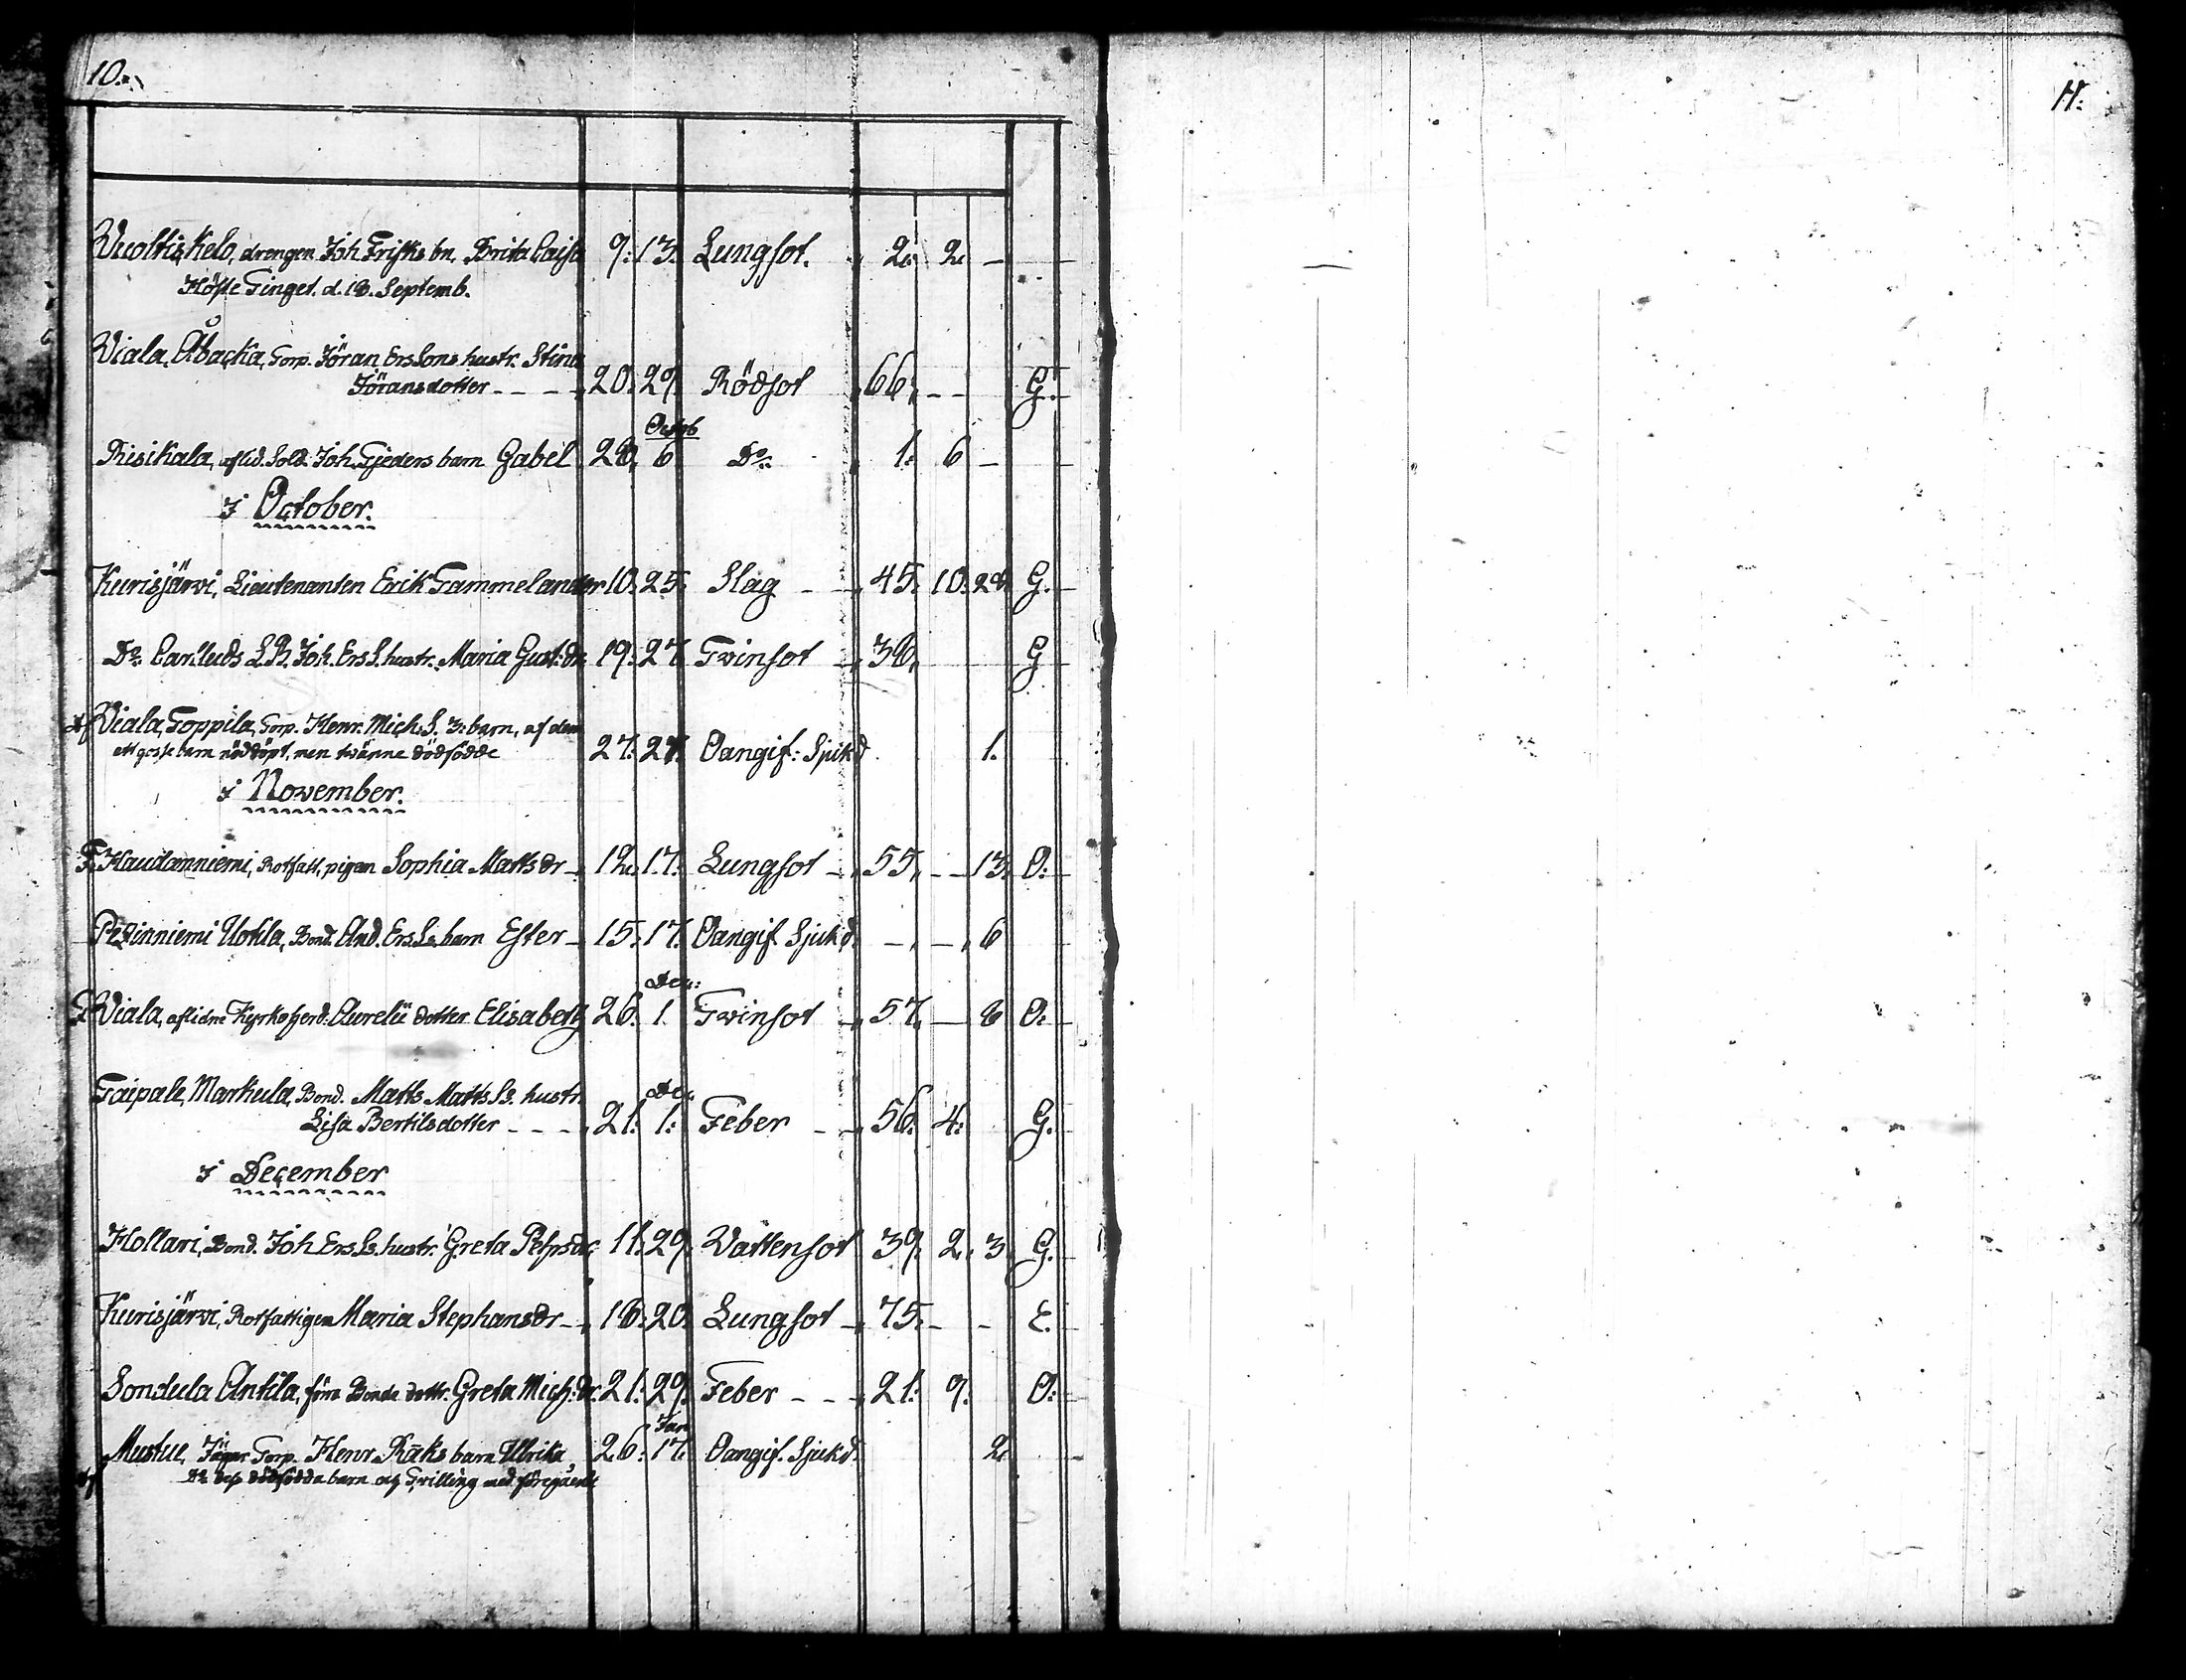 10.
11.
Wuoltiskelo, drengen Joh. Frisks bn. Brita Caisa 9: 13: Lungsot. 2. 2. —
Höste Tinget. d. 18. Septemb.
Wiala, Åbacka, Torp. Jöran ErsSons hustr. Stina
Jöransdotter - - - 20: 29. Rödsot 66. - - G.
Octob
Risikala, aflid. Sold. Joh. Gjeders barn Gabel 28. 6 Do: 1. 6 —
i October.
Kurisjärvi, Lieutenanten Erik Tammelander 10: 25. Slag - 45: 10: 28 G.
Do. Carleds LB. Joh. Ers S. hustr. Maria Gust: dr. 19: 27. Tvinsot 36. G
Wiala, Toppila, Torp. Henr. Mich. S. 3: barn, af dem
ett gosse barn nöddöpt, men tvänne dödfödde 27: 27. Oangif: Sjukd 1.
i November.
Haudanniemi, Rotfatt. pigan Sophia Matts dr - 12. 17. Lungsot - 55. - - 13. O:
Uotila, Bond. And. Ers Ss. barn Ester - 15: 17. Oangif. Sjukd. - - 6
Dec:
Wiala, aflidne Kyrkoherd. Aurelii dotter Elisabeth 26. 1. Tvinsot 57. — 8 O:
Taipale, Markula, Bond. Matts Matts Ss. hustr. Dec.
Lisa Bertilsdotter - - - 21: 1: Feber - - 56: 4: G.
i December
Hollari, Bond. Joh. Ers Ss. hustr. Greta Pehrsdr. 11: 29. Wattensot 39. 2. 3. G.
Kurisjärvi, Rotfattigen Maria Stephansdr - 16: 20. Lungsot - 75. - - E.
Sondula Antila, förra Bonde dottr. Greta Mich: dr. 21: 29. Feber - - 21: 9. O:
Jan
Mustue, Jägar Torp. Henr. Räks barn Ulrika, 26: 17. Oangif. Sjukd. 2
Do. dess dödfödda barn och Tvilling med föregående